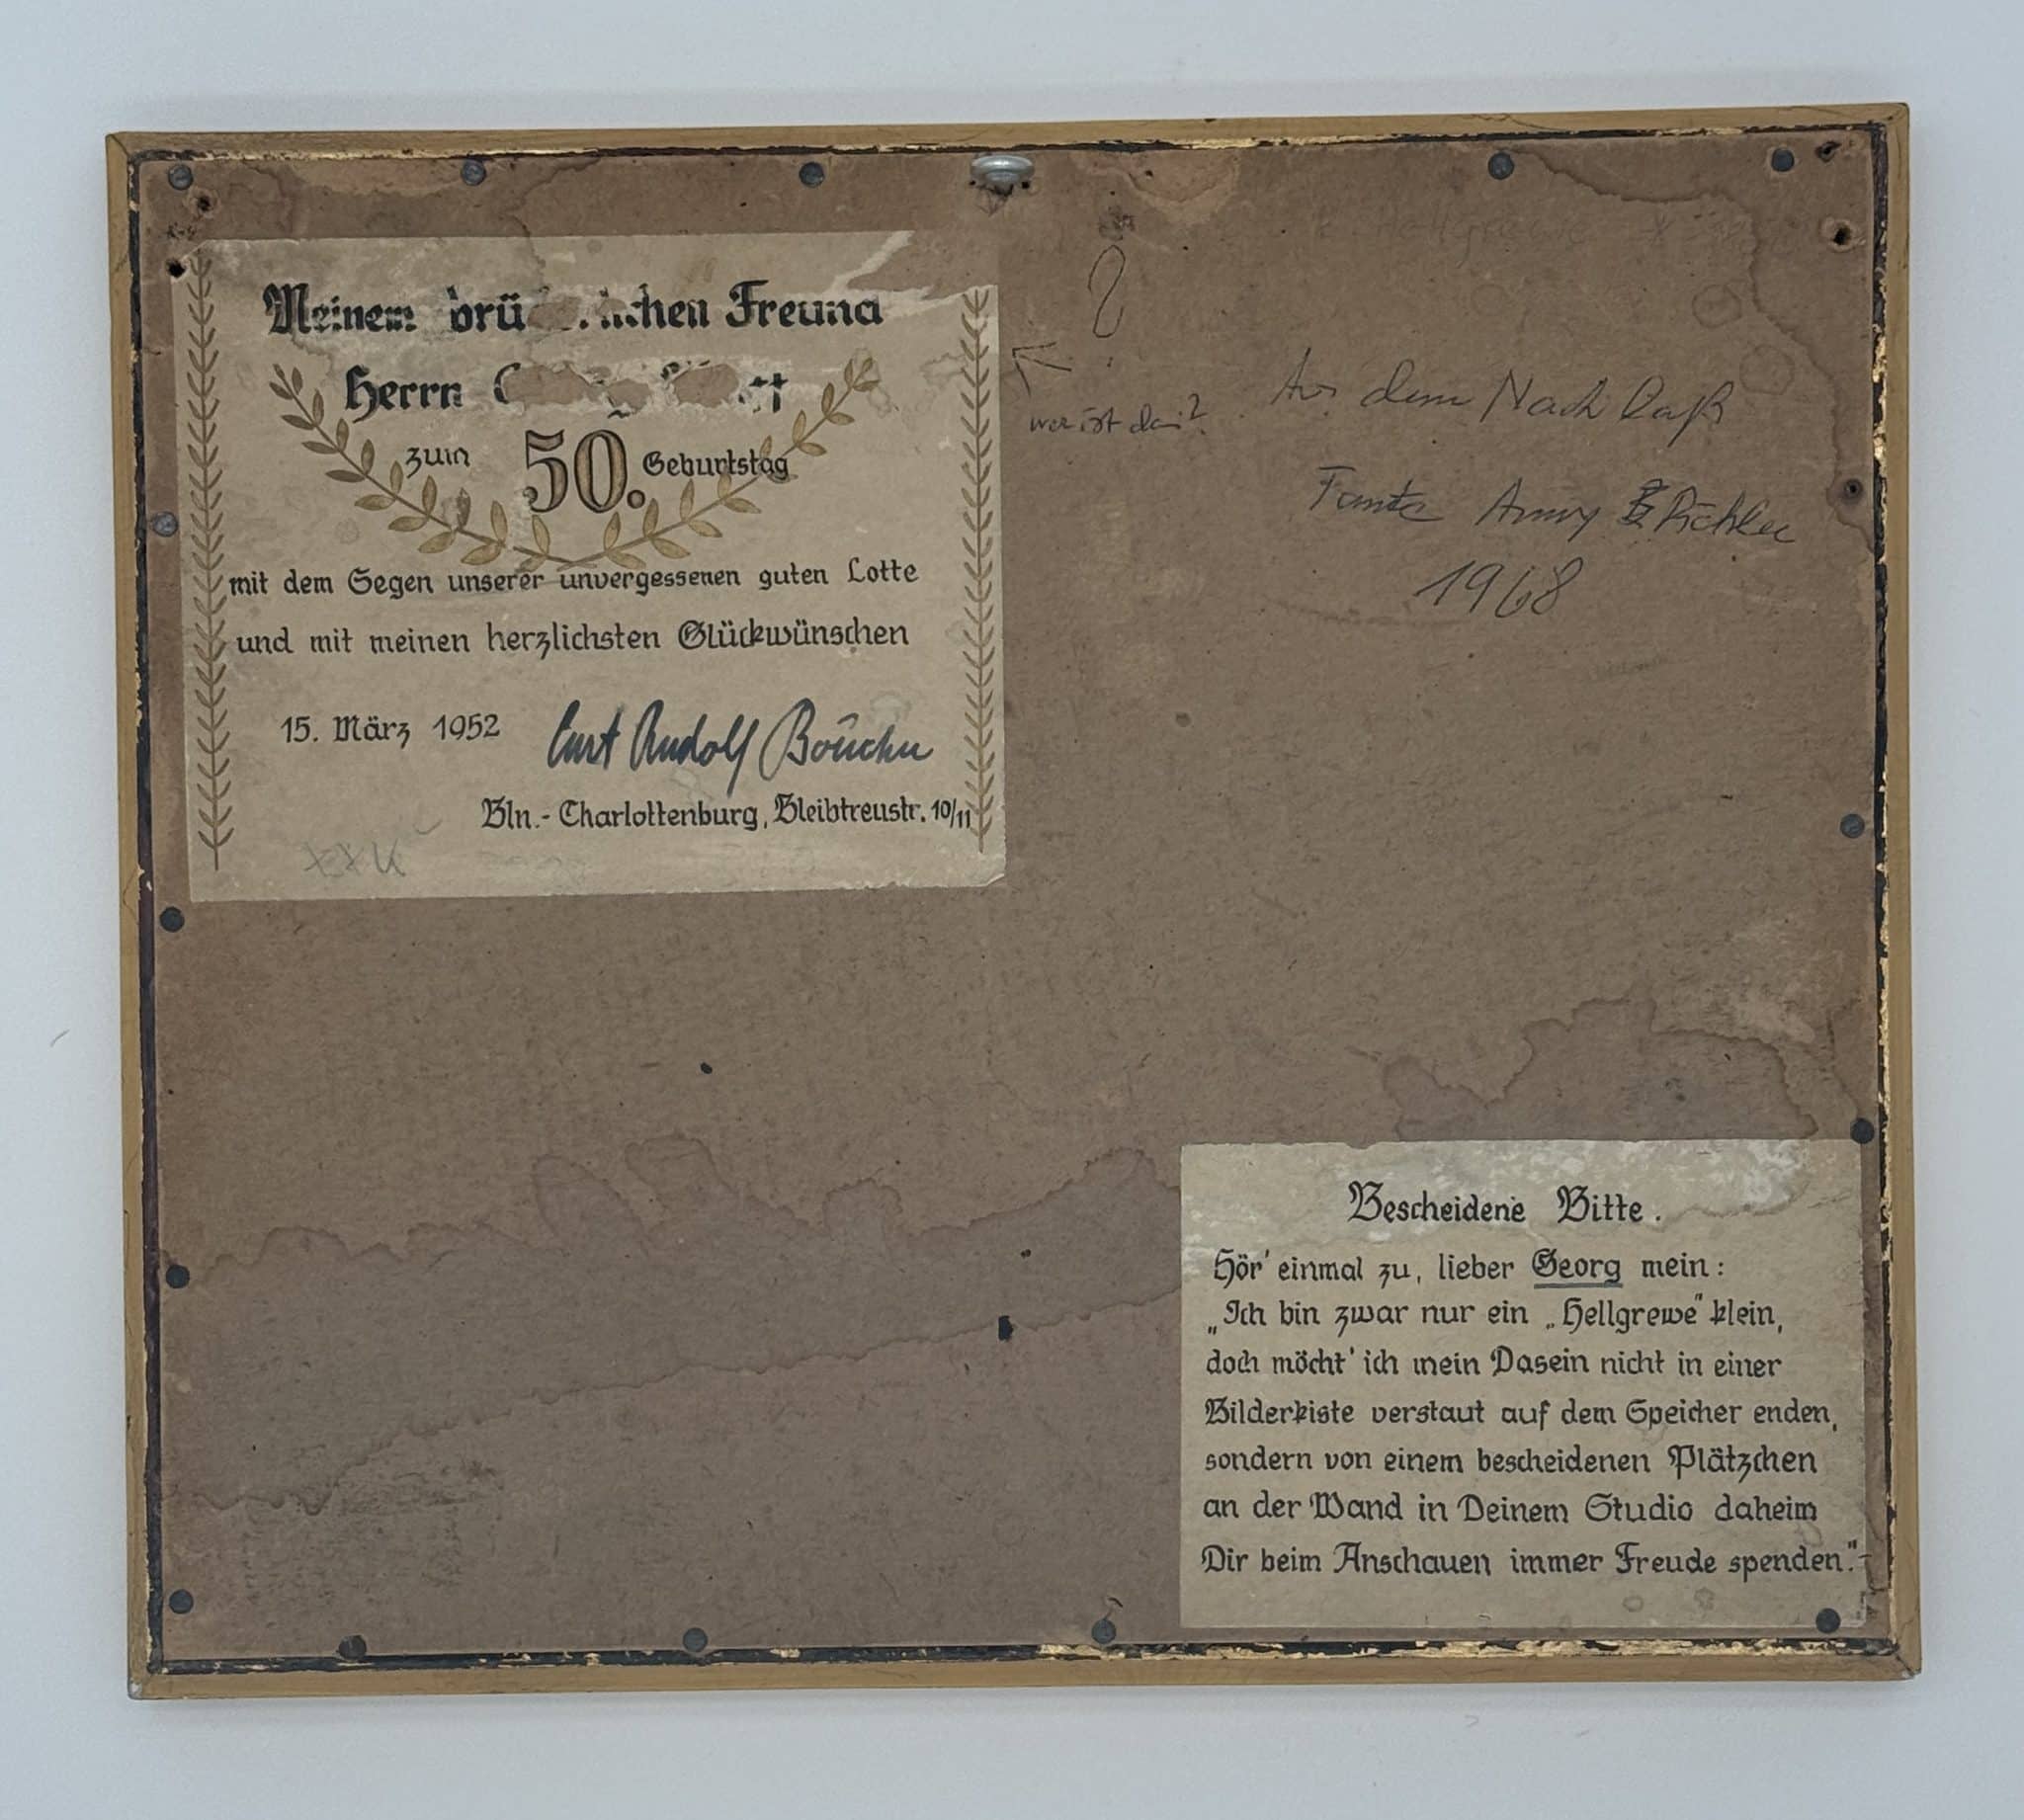 Meinem brü chen Freund
Herrn
zum 50. Geburtstag
mit dem Segen unserer unvergessenen guten Lotte
und mit meinen herzlichsten Glückwünschen
15. März 1952 Curt Rudolf
Bln.- Charlottenburg, Bleibtreustr. 10/11
?
wer ist das?
Aus dem Nachlaß
Tante Anny Pichler
1968
Bescheidene Bitte.
Hör' einmal zu, lieber Georg mein:
„Ich bin zwar nur ein „Hellgrewe" klein,
doch möcht' ich mein Dasein nicht in einer
Bilderkiste verstaut auf dem Speicher enden,
sondern von einem bescheidenen Plätzchen
an der Wand in Deinem Studio daheim
Dir beim Anschauen immer Freude spenden."-